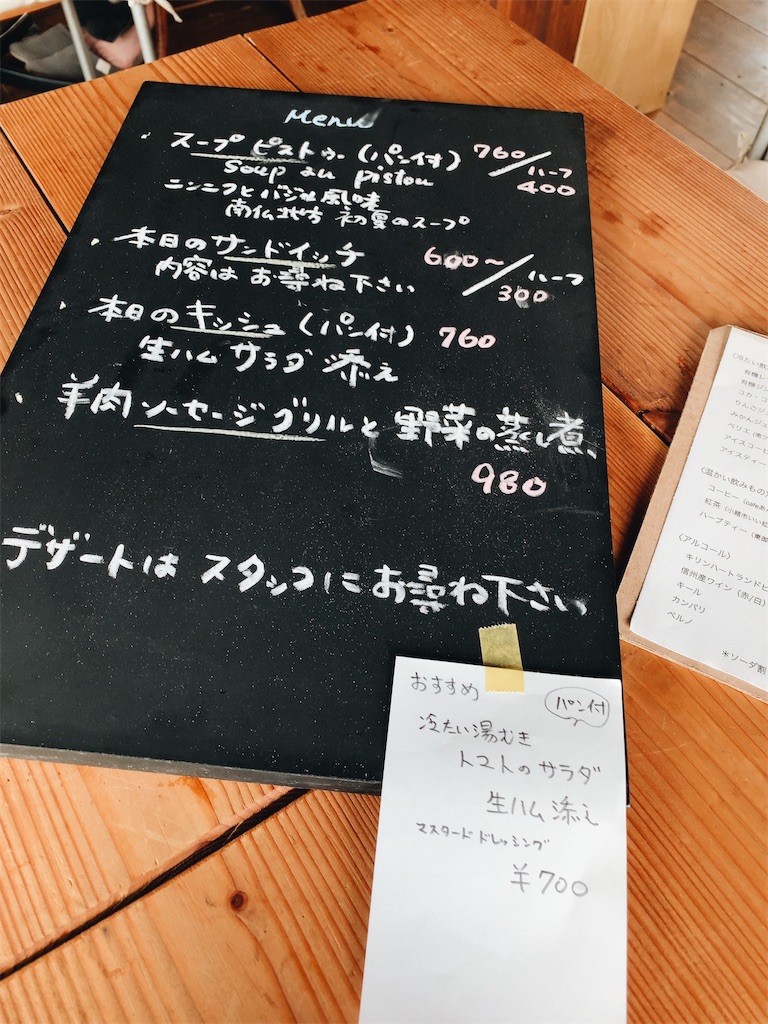 Menu
スープ ピストゥー (パン付) 760/ハーフ
soup au pistou 400
ニンニクとバジル風味
南仏地方 初夏のスープ
本日のサンドイッチ 600〜/ハーフ
内容は お尋ね下さい 300
本日のキッシュ (パン付) 760
生ハム サラダ 添え
羊肉ソーセージグリルと 野菜の蒸し煮
980
デザートは スタッフにお尋ね下さい
おすすめ パン付
冷たい湯むき
トマトのサラダ
生ハム添え
マスタードドレッシング
¥700
(冷たい飲
有機レ
有機ジン
コカ・コ
りんごジュ
みかんジュ
ペリエ
アイスコーヒ
アイスティー
(温かい飲みもの)
コーヒー (cafe
紅茶
ハーブティー
(アルコール)
キリンハートランドビ
信州産ワイン (赤/白)
キール
カンパリ
ペルノ
*ソーダ割